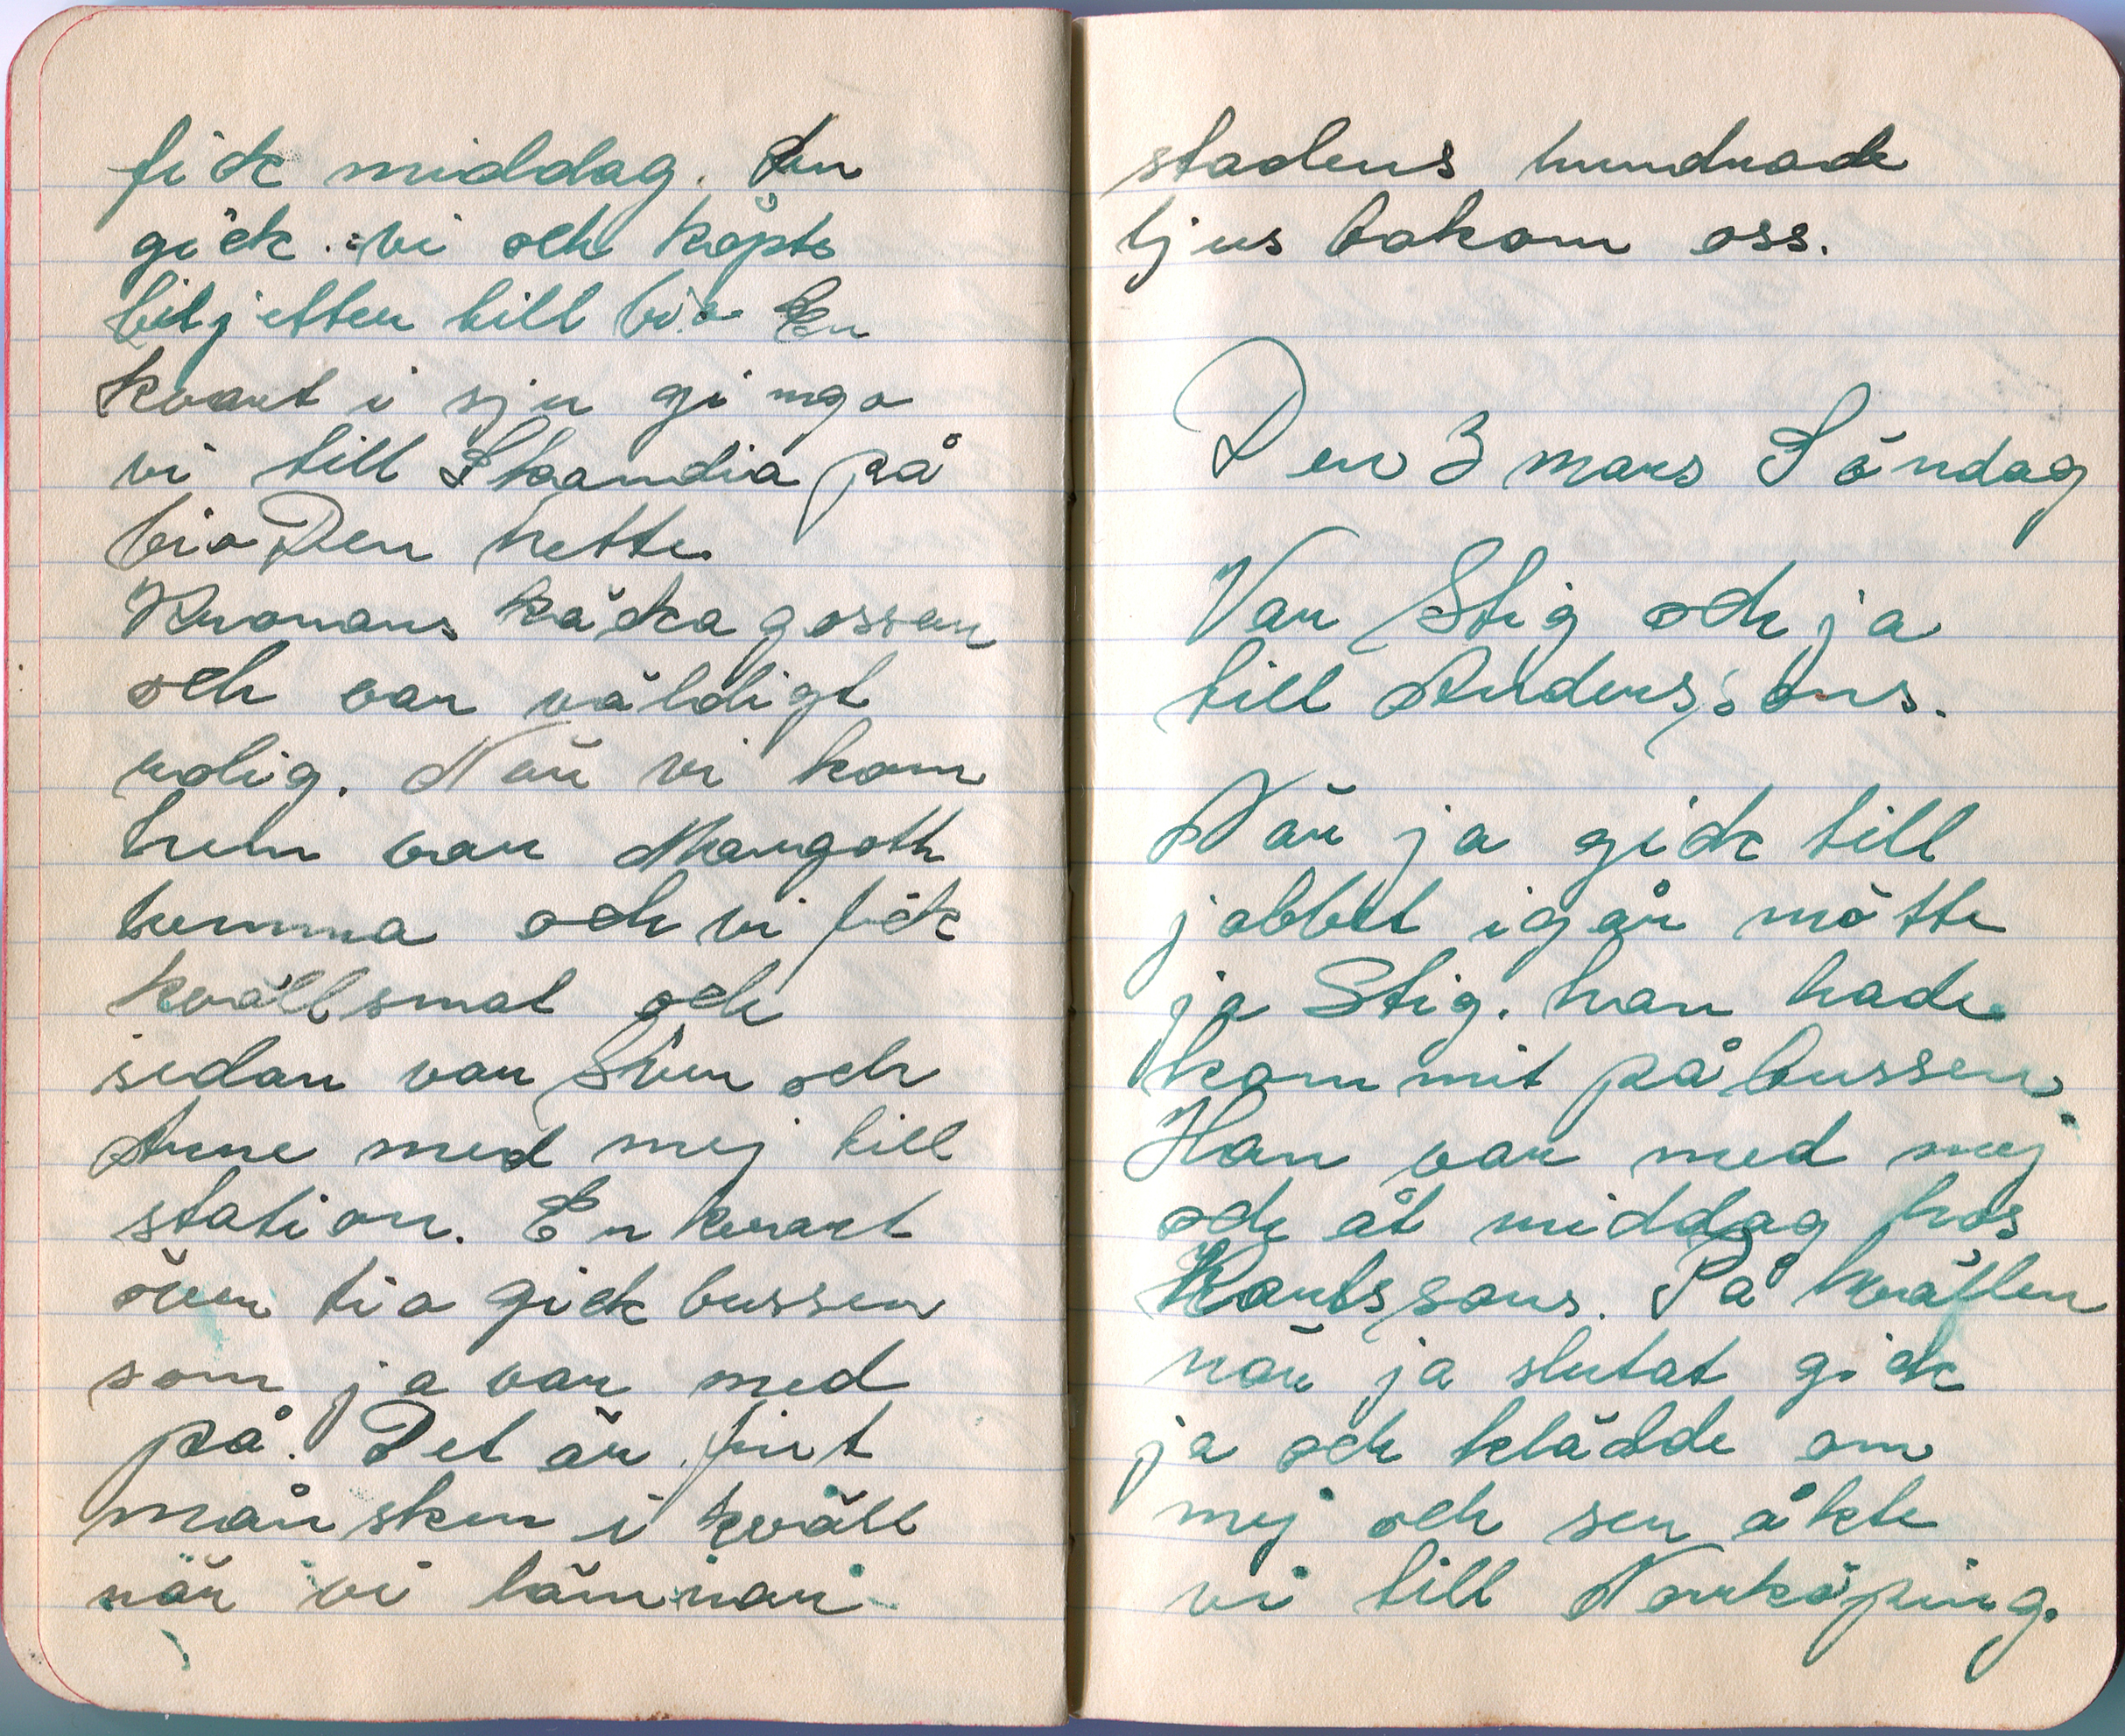 fick middag. Sen
gick vi och köpte
biljetter till bio En
kvart i sju gingo
vi till Skandia på
bio Den hette
Kronans käcka gossar
och var väldigt
rolig. När vi kom
hem var Margoth
hemma och vi fick
kvällsmat och
sedan var Sven och
Arne med mej till
station. En kvart
över tio gick bussen
som ja var med
på. Det är fint
månsken i kväll
när vi lämnar
stadens hundrade
ljus bakom oss.
Den 3 mars Söndag
Var Stig och ja
till Anderssons.
När ja gick till
jobbet igår mötte
ja Stig. han hade
kommit på bussen.
Han var med mej
och åt middag hos
Karlssons. På kvällen
när ja slutat gick
ja och klädde om
mej och sen åkte
vi till Norrköping.